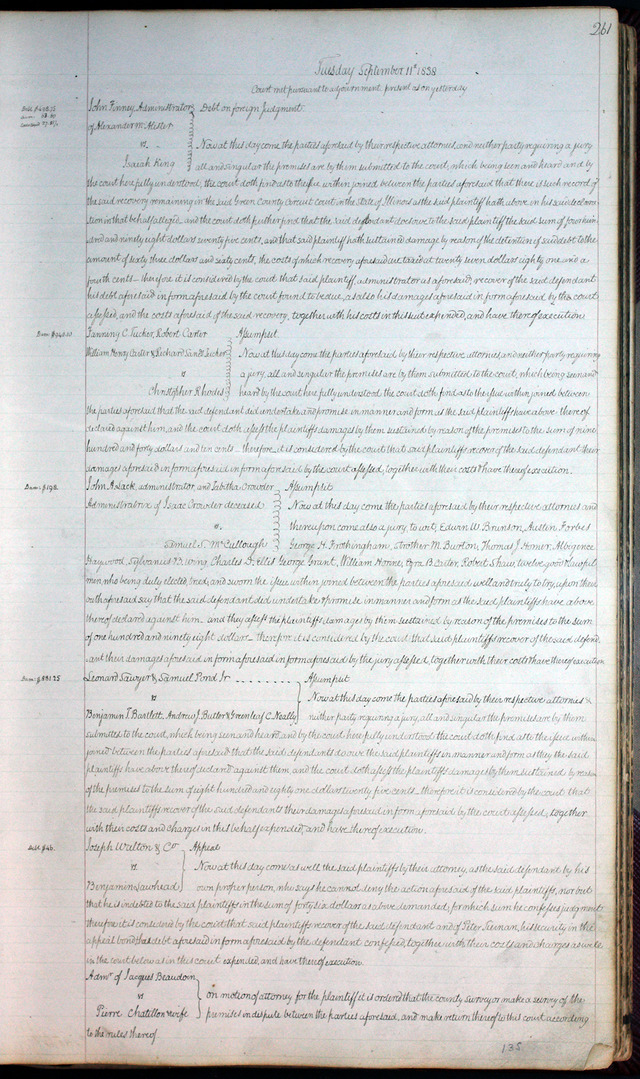 261
Tuesday September 11th 1838
Court met pursuant to adjournment, present as on yesterday
Debt $498.75
Dam. 63.60
Costs 27.81¼
John Finney Administrator Debt on foreign Judgment.
of Alexander McAlister
vs Now at this day come the parties aforesaid by their respective attornies, and neither party requiring a jury
Isaiah King all and singular the premises are by them submitted to the court, which being seen and heard and by
the court here fully understood, the court doth find as to the issue within joined between the parties aforesaid that there is such record of
the said recovery remaining in the said Green County Circuit court in the State of Illinois as the said plaintiff hath above in his said declara-
tion in that behalf alleged, and the court doth further find that the said defendant doth owe to the said plaintiff the said sum of four hun-
dred and ninety eight dollars seventy five cents, and that said plaintiff hath sustained damage by reason of the detention of said debt to the
amount of sixty three dollars and sixty cents, the costs of which recovery aforesaid are taxed at twenty seven dollars eighty one and a
fourth cents — therefore it is considered by the court that said plaintiff, administrator as aforesaid, recover of the said defendant
his debt aforesaid in form aforesaid by the court found to be due, as also his damages aforesaid in form aforesaid by this court
assessed, and the costs aforesaid of the said recovery, together with his costs in this suit expended, and have thereof execution.
Dam: $940.10
Fanning C. Tucker, Robert Carter Assumpsit
William Henry Carter & Richard Sands Tucker Now at this day come the parties aforesaid by their respective attornies and neither party requiring
vs a jury, all and singular the premises are by them submitted to the court, which being seen and
Christopher Rhodes heard by the court here fully understood the court doth find as to the issue within joined between
the parties aforesaid that the said defendant did undertake and promise in manner and form as the said plaintiffs have above thereof
declared against him, and the court doth assess the plaintiffs damages by them sustained by reason of the premises to the sum of nine
hundred and forty dollars and ten cents — therefore it is considered by the court that said plaintiffs recover of the said defendant their
damages aforesaid in form aforesaid in form aforesaid by the court assessed, together with their costs & have thereof execution.
Dam: $198.
John A. Jack, administrator, and Tabitha Crowder Assumpsit
Administratrix of Isaac Crowder deceased Now at this day come the parties aforesaid by their respective attornies and
vs. thereupon come also a jury to wit, Edwin W. Brunson, Austin Forbes
Samuel T. McCullough George H. Frothingham, Strother M. Burton, Thomas J. Homer, Albigence
Haywood, Sylvanus B. Wing, Charles D. Ellis George Grant, William Horine, Ezra B. Carter, Robert Shaw, twelve good & lawful
men, who being duly elected, tried, and sworn the issue within joined between the parties aforesaid well and truly to try, upon their
oath aforesaid say that the said defendant did undertake & promise in manner and form as the said plaintiffs have above
thereof declared against him — and they assess the plaintiffs damages by them sustained by reason of the premises to the sum
of one hundred and ninety eight dollars — therefore it is considered by the court that said plaintiffs recover of the said defend-
ant their damages aforesaid in form aforesaid in form aforesaid by the jury assessed, together with their costs & have thereof execution
Dam: $881.25
Leonard Sawyer & Samuel Pond Jr Assumpsit
vs Now at this day come the parties aforesaid by their respective attornies &
Benjamin T. Bartlett, Andrew J. Butler & Greenleaf C. Neally neither party requiring a jury, all and singular the premises are by them
submitted to the court, which being seen and heard and by the court here fully understood the court doth find as to the issue within
joined between the parties aforesaid that the said defendants do owe the said plaintiffs in manner and form as they the said
plaintiffs have above thereof declared against them, and the court doth assess the plaintiffs damages by them sustained by reason
of the premises to the sum of eight hundred and eighty one dollars twenty five cents — therefore it is considered by the court that
the said plaintiffs recover of the said defendants their damages aforesaid in form aforesaid by the court assessed, together
with their costs and charges in this behalf expended, and have thereof execution.
Debt $46.
Joseph Walton & Co Appeal
vs Now at this day come as well the said plaintiffs by their attorney, as the said defendant by his
Benjamin Lawhead own proper person, who says he can not deny the action aforesaid of the said plaintiffs, nor but
that he is indebted to the said plaintiffs in the sum of forty six dollars as above demanded, for which sum he confesses judgment
therefore it is considered by the court that said plaintiffs recover of the said defendant and of Peter his security in the
appeal bond the debt aforesaid in form aforesaid by the defendant confessed, together with their costs and charges as well
in the court below as in this court expended, and have thereof execution.
Admr of Jacques Beaudoin
vs on motion of attorney for the plaintiff it is ordered that the county surveyor make a survey of the
Pierre Chatillon & wife premises in dispute between the parties aforesaid, and make return thereof to this court according
to the rules thereof.
135